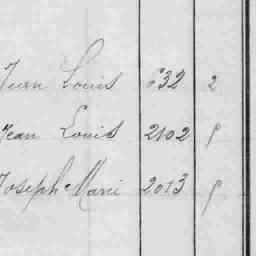 Jean Louis 632 2
Jean Louis 2102 9
Joseph Marie 2013 9